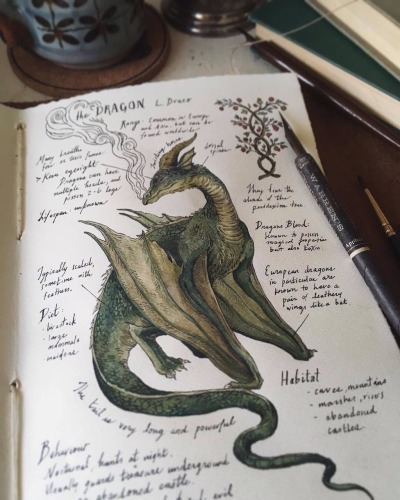 the DRAGON L. Draco
Range: Common in Europe
and Asia, but can be
found worldwide
Many breathe
fire or toxic fumes
Keen eyesight
Dragons can have
multiple heads, and
possess 2-6 legs
Lifespan unknown
long horns
dorsal
spines
They fear the
shade of the
peridexion tree
Dragons Blood:
known to possess
magical properties
but also toxic
Typically scaled,
sometimes with
feathers.
European dragons
in particular are
known to have a
pair of leathery
wings like a bat.
Diet:
- livestock
- large
mammals
- maidens
Habitat
- caves, mountains
- marshes, rivers
- abandoned
castles.
The tail is very long and powerful
Behaviour
Nocturnal, hunts at night.
Usually guards treasure underground
abandoned castle.
evil